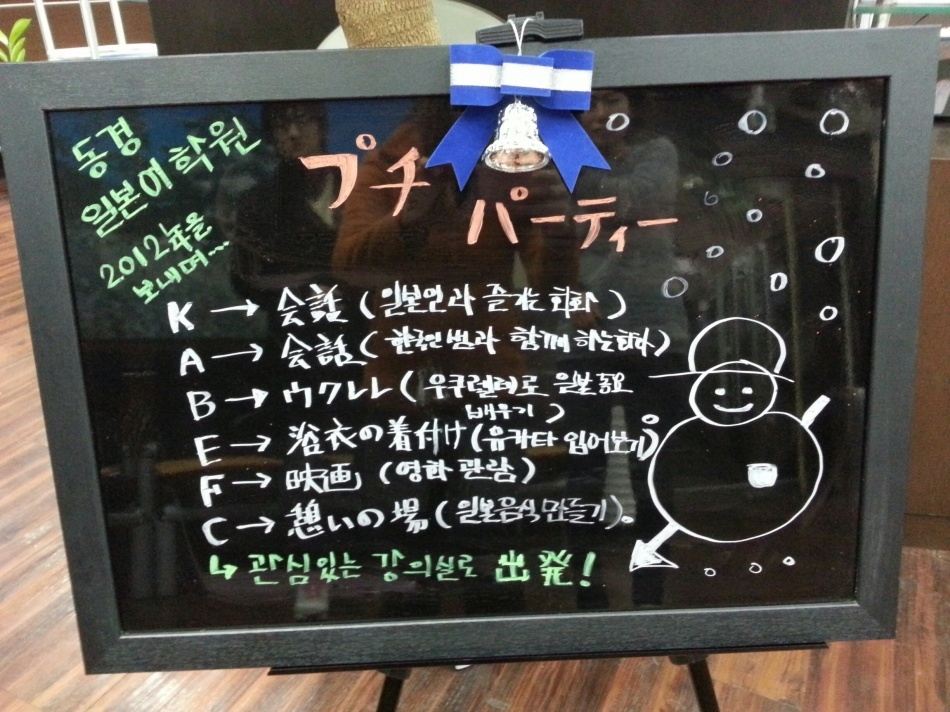 동경
일본어 학원
2012年을
보내며...
プチ
パーティー
K → 会話 (일본인과 즐기는 회화)
A → 会話 (한국인 쌤과 함께 하는 회화)
B → ウクレレ (우쿠렐레로 일본 동요
배우기)
E → 浴衣の着付け (유카타 입어보기)
F → 映画 (영화 관람)
C → 憩いの場 (일본음식 만들기)。
↳ 관심있는 강의실로 出発!